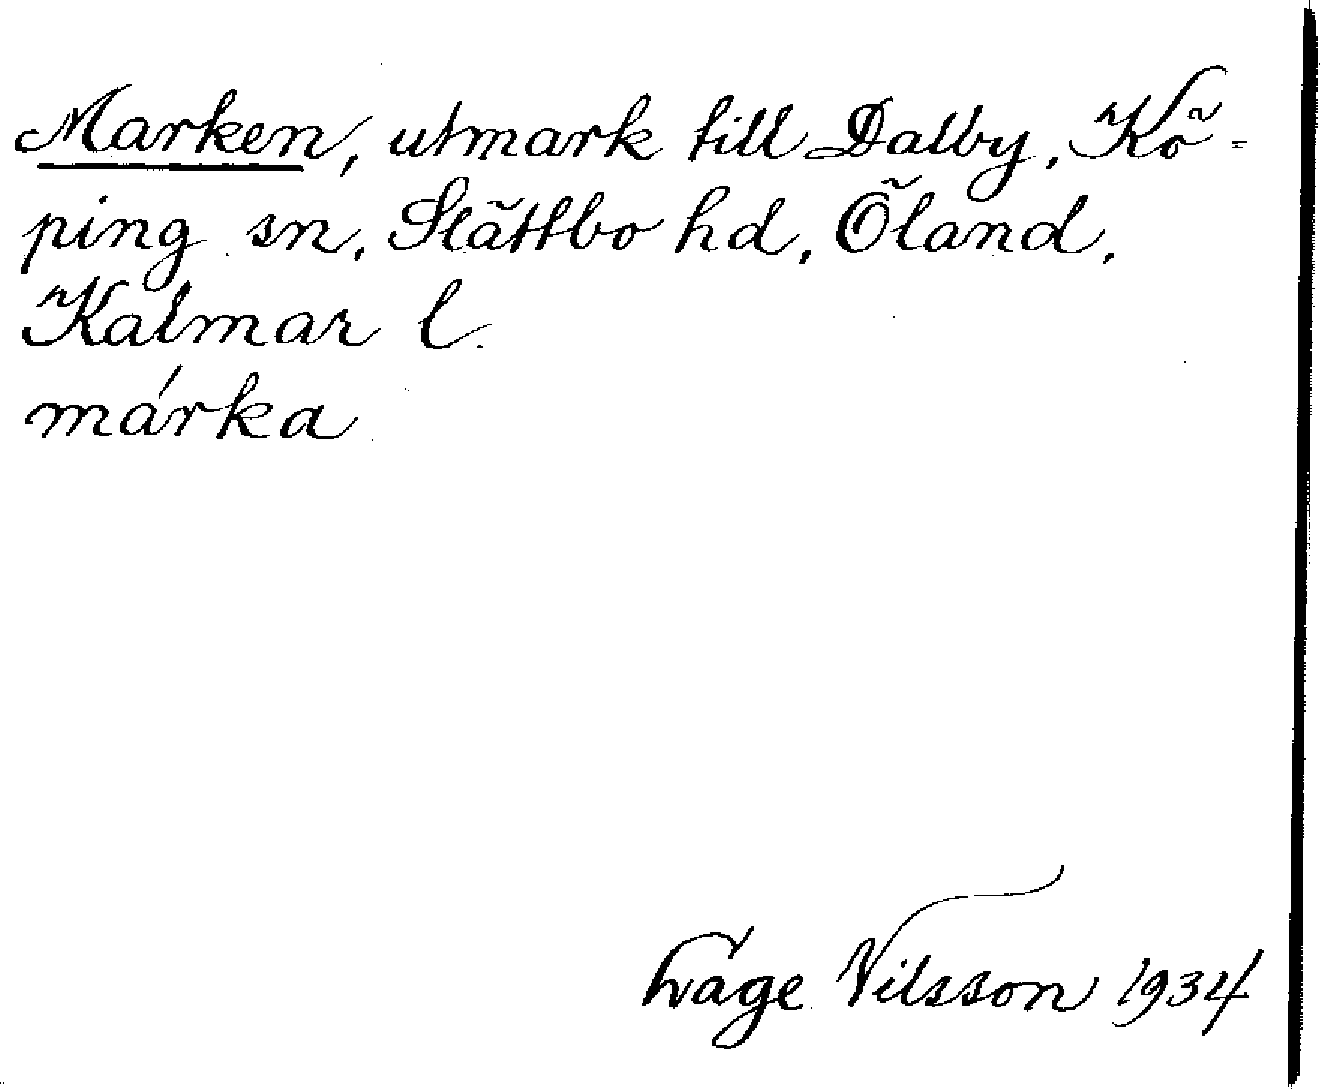 Marken, utmark till Dalby, Kö-
ping sn, Slättbo hd, Öland,
Kalmar l.
márka
Nilsson 1934